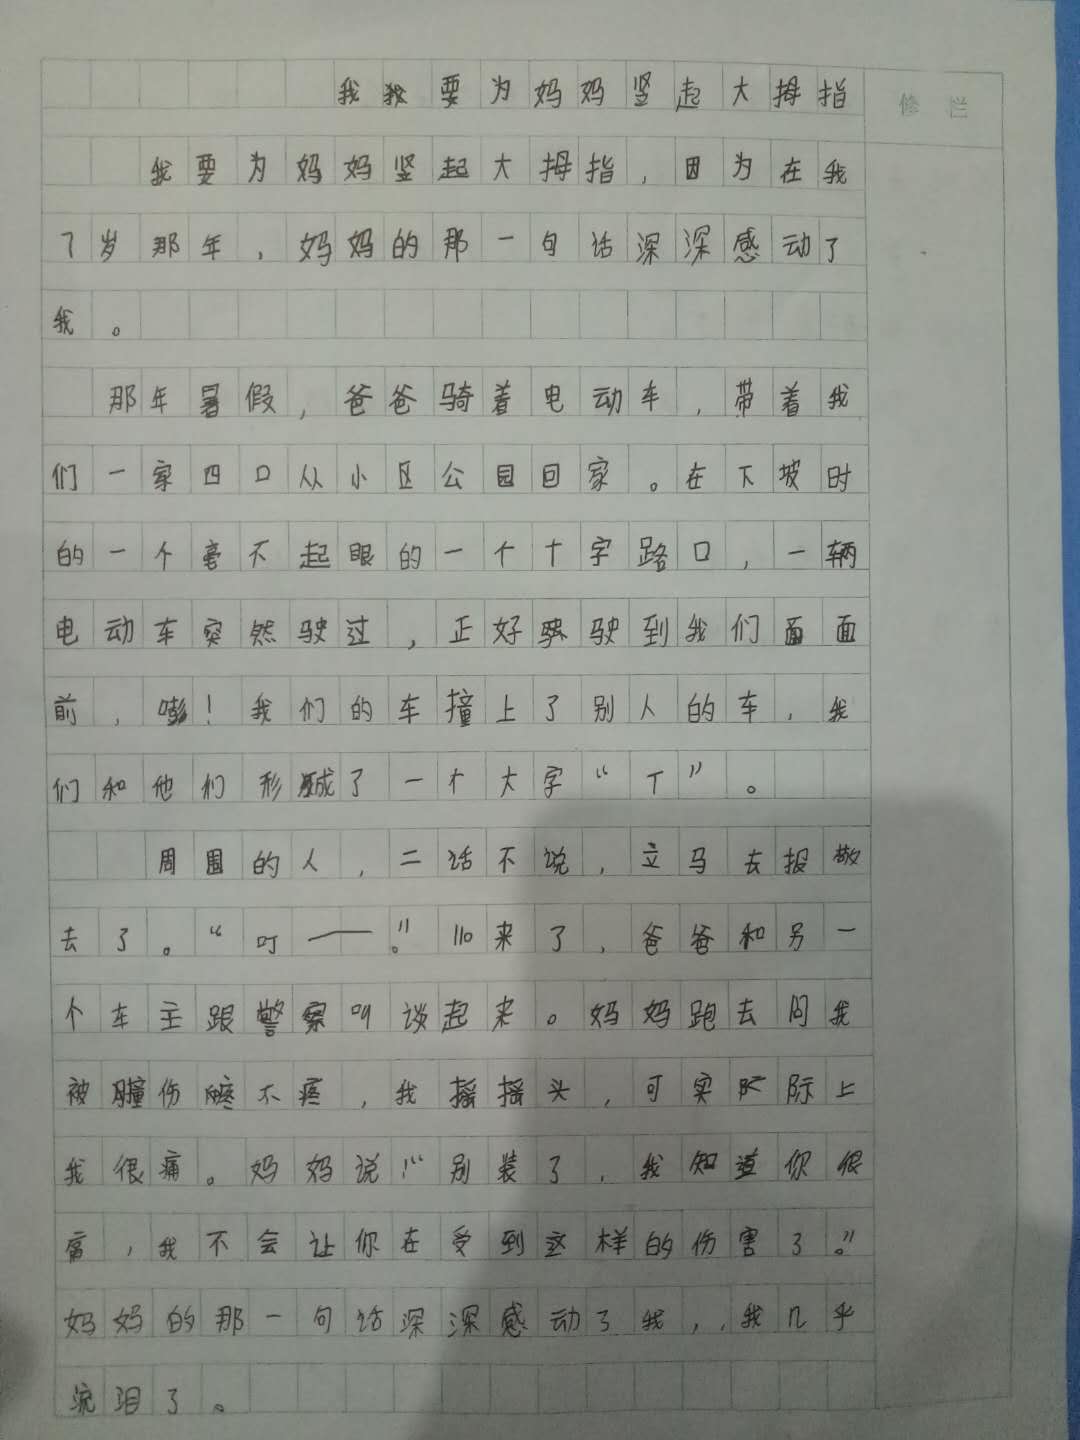 我要为妈妈竖起大拇指
修 栏
我要为妈妈竖起大拇指，因为在我
7岁那年，妈妈的那一句话深深感动了
我。
那年暑假，爸爸骑着电动车，带着我
们一家四口从小区公园回家。在下坡时
的一个毫不起眼的一个十字路口，一辆
电动车突然驶过，正好驶到我们面
前，嘭！我们的车撞上了别人的车，我
们和他们形成了一个大字“丁”。
周围的人，二话不说，立马去报敬
去了。“叮——”。110来了，爸爸和另一
个车主跟警察叫谈起来。妈妈跑去问我
被撞伤疼不疼，我摇摇头，可实际上
我很痛。妈妈说：“别装了，我知道你很
痛，我不会让你在受到这样的伤害了。”
妈妈的那一句话深深感动了我，，我几乎
流泪了。